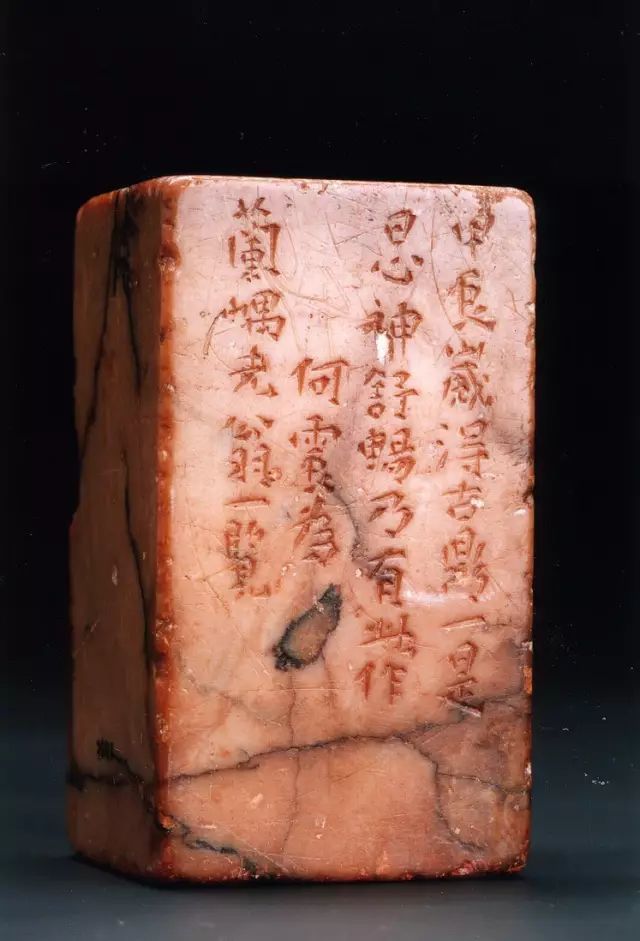 甲辰歲得吉鼎一是
日心神舒暢乃有此作
何震為
蘭嵎老翁一覽